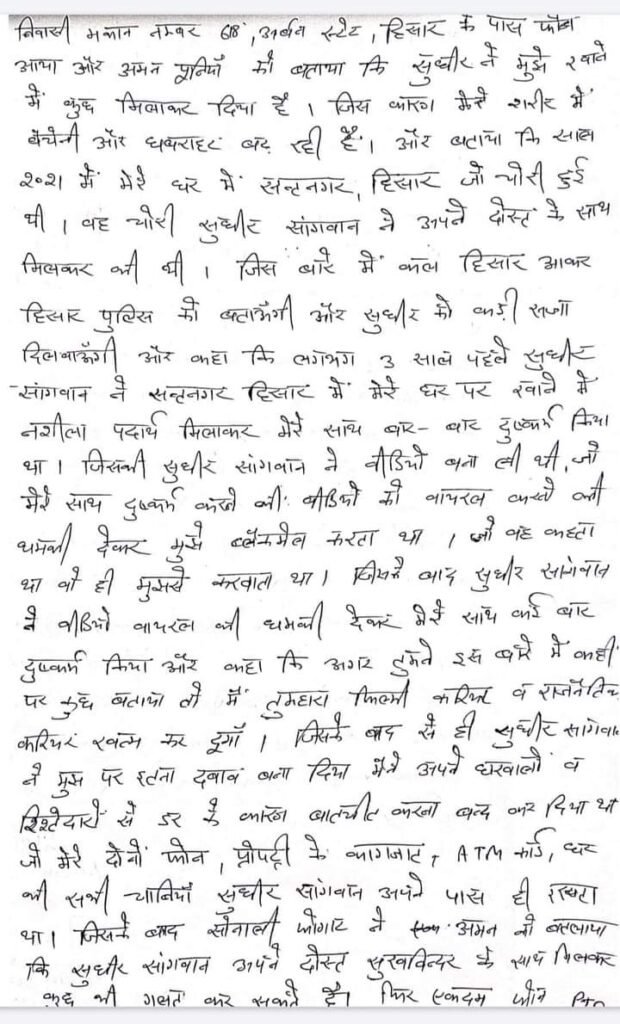 निवासी मकान नम्बर 68, अर्बन स्टेट, हिसार के पास फोन
आया और अमन पूनियाँ को बताया कि सुधीर ने मुझे खाने
में कुछ मिलाकर दिया है । जिस कारण मेरे शरीर में
बेचेनी और घबराहट बढ़ रही है । और बताया कि साल
२०२१ में मेरे घर में सन्तनगर, हिसार जो चोरी हुई
थी । वह चोरी सुधीर सांगवान ने अपने दोस्त के साथ
मिलकर की थी । जिस बारे में कल हिसार आकर
हिसार पुलिस को बताऊँगी और सुधीर को कड़ी सजा
दिलवाऊँगी और कहा कि लगभग 3 साल पहले सुधीर
सांगवान ने सन्तनगर हिसार में मेरे घर पर खाने में
नशीला पदार्थ मिलाकर मेरे साथ बार-बार दुष्कर्म किया
था । जिसकी सुधीर सांगवान ने वीडियो बना ली थी, जो
मेरे साथ दुष्कर्म करने की वीडियो को वायरल करने की
धमकी देकर मुझे ब्लैकमेल करता था । जो वह कहता
था वो ही मुझसे करवाता था । जिसके बाद सुधीर सांगवान
ने वीडियो वायरल की धमकी देकर मेरे साथ कई बार
दुष्कर्म किया और कहा कि अगर तुमने इस बारे में कहीं
पर कुछ बताया तो मैं तुम्हारा फिल्मी करियर व राजनैतिक
करियर खत्म कर दूगाँ । जिसके बाद से ही सुधीर सांगवान
ने मुझ पर इतना दबाव बना दिया मैंने अपने घरवालों व
रिश्तेदारों से डर के कारण बातचीत करना बन्द कर दिया था
जो मेरे दोनों फोन, प्रोपर्टी के कागजात, ATM कार्ड, घर
की सभी चाबियाँ सुधीर सांगवान अपने पास ही रखता
था । जिसके बाद सोनाली फोगाट ने अमन को बतलाया
कि सुधीर सांगवान अपने दोस्त सुखविन्दर के साथ मिलकर
कुछ भी गलत कर सकते है । फिर एकदम फोन PTO